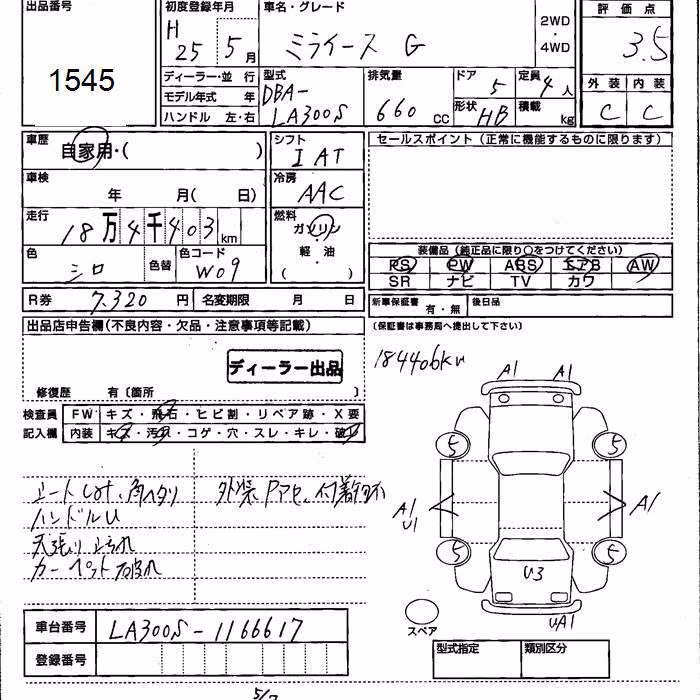 出品番号
1545
初度登録年月
H 25 5月
車名・グレード
ミライース G
2WD
・
4WD
評価点
3.5
ディーラー・並 行
モデル年式 年
ハンドル 左・右
型式
DBA-
LA300S
排気量
660 cc
ドア
5
形状
HB
定員
4人
積載
kg
外装 内装
C C
車歴
自家用・( )
車検
年 月( 日)
走行
18万4千403km
色
シロ
色替
色コード
W09
シフト
I AT
冷房
AAC
燃料
ガソリン
・
軽・油
( )
セールスポイント(正常に機能するものに限ります)
装備品(純正品に限り○をつけてください)
PS PW ABS エアB AW
SR ナビ TV カワ
R券 7,320 円 名変期限 月 日
新車保証書 有・無 後日品
(保証書は事務局へ提出して下さい)
出品店申告欄(不良内容・欠品・注意事項等記載)
ディーラー出品
修復歴 有〔箇所 〕
検査員
記入欄
FW キズ・飛石・ヒビ割・リペア跡・X要
内装 キズ・汚れ・コゲ・穴・スレ・キレ・破れ
184406km
A1 A1
5 5
A1
U1
A1
5 5
U3
UA1
スペア
ハンドルU
天張り よごれ
カーペット破れ
車台番号 LA300S-1166617
登録番号
型式指定 類別区分